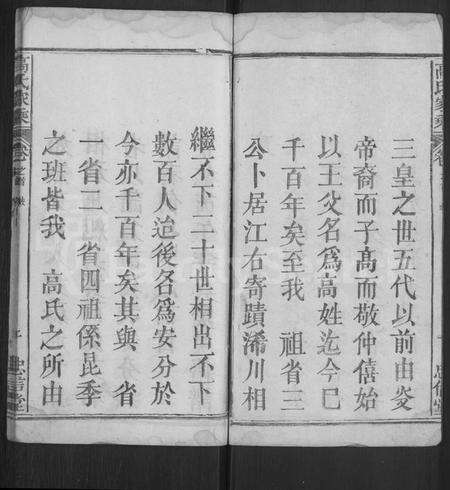 高氏家乘
三皇之世五代以前由炎
帝裔而子高而敬仲僖始
以王父名爲高姓迄今巳
千百年矣至我 祖省三
公卜居江右寄蹟浠川相
忠信堂
繼不下三十世相出不下
數百人迨後各爲安分於
今亦千百年矣其與 省
一省二 省四祖係昆季
之班皆我 高氏之所由
高氏家乘 卷
忠信堂